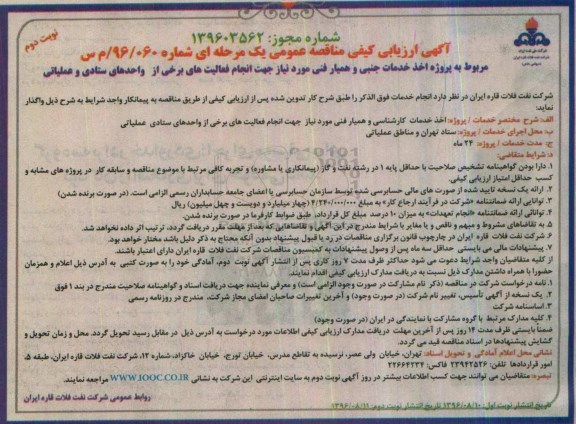 نوبت دوم
شماره مجوز: ۱۳۹۶۰۳۵۶۲
آگهی ارزیابی کیفی مناقصه عمومی یک مرحله ای شماره ۹۶/۰۶۰/م س
مربوط به پروژه اخذ خدمات جنبی و همیار فنی مورد نیاز جهت انجام فعالیت های برخی از واحدهای ستادی و عملیاتی
شرکت نفت فلات قاره ایران در نظر دارد انجام خدمات فوق الذکر را طبق شرح کار تدوین شده پس از ارزیابی کیفی از طریق مناقصه به پیمانکار واجد شرایط به شرح ذیل واگذار
نماید:
الف: شرح مختصر خدمات / پروژه: اخذ خدمات کارشناسی و همیار فنی مورد نیاز جهت انجام فعالیت های برخی از واحدهای ستادی عملیاتی
ب: محل اجرای خدمات / پروژه: ستاد تهران و مناطق عملیاتی
ج: مدت خدمات / پروژه: ۲۴ ماه
د: شرایط متقاضی:
۱. دارا بودن گواهینامه تشخیص صلاحیت با حداقل پایه ۱ در رشته نفت و گاز (پیمانکاری یا مشاوره) و تجربه کافی مرتبط با موضوع مناقصه و سابقه کار در پروژه های مشابه و
کسب حداقل امتیاز ارزیابی کیفی.
۲. ارائه یک نسخه تایید شده از صورت های مالی حسابرسی شده توسط سازمان حسابرسی یا اعضای جامعه حسابداران رسمی الزامی است. (در صورت برنده شدن)
۳. توانایی ارائه ضمانتنامه «شرکت در فرآیند ارجاع کار» به مبلغ ۴/۲۴۰/۰۰۰/۰۰۰ (چهار میلیارد و دویست و چهل میلیون) ریال
۴. توانائی ارائه ضمانتنامه «انجام تعهدات» به میزان ۱۰ درصد مبلغ کل قرارداد، طبق ضوابط کارفرما در صورت برنده شدن.
۵. به تقاضاهای مشروط و مبهم و ناقص و یا مغایر با شرایط مندرج در این آگهی و تقاضاهایی که بعد از مهلت مقرر دریافت گردد، ترتیب اثر داده نخواهد شد.
۶. شرکت نفت فلات قاره ایران در چارچوب قانون برگزاری مناقصات در رد یا قبول پیشنهاد بدون آنکه محتاج به ذکر دلیل باشد مختار خواهد بود.
۷. پیشنهادات مالی می بایستی حداقل سه ماه پس از وصول پیشنهادات به کمیسیون مناقصات شرکت نفت فلات قاره ایران دارای اعتبار باشند.
از کلیه متقاضیان واجد شرایط دعوت می شود حداکثر ظرف مدت ۷ روز کاری پس از انتشار آگهی نوبت دوم، آمادگی خود را به صورت کتبی به آدرس ذیل اعلام و همزمان
حضورا با همراه داشتن مدارک ذیل نسبت به دریافت مدارک ارزیابی کیفی اقدام نمایند.
۱. نامه درخواست شرکت در مناقصه (ذکر نام مشارکت در صورت وجود الزامی است) و معرفی نماینده جهت دریافت اسناد و گواهینامه صلاحیت مندرج در بند ۱ فوق
۲. یک نسخه از آگهی تأسیس، تغییر نام شرکت (در صورت وجود) و آخرین تغییرات صاحبان امضای مجاز شرکت، مندرج در روزنامه رسمی
۳. اساسنامه شرکت
۴. کلیه مدارک مرتبط با گروه مشارکت یا نمایندگی در ایران (در صورت وجود)
ضمنا بایستی ظرف مدت ۱۴ روز پس از آخرین مهلت دریافت مدارک ارزیابی کیفی اطلاعات مورد درخواست به آدرس ذیل در مقابل رسید تحویل گردد. محل و زمان تحویل و
گشایش پیشنهادها در اسناد مناقصه قید می گردد.
نشانی محل اعلام آمادگی و تحویل اسناد: تهران، خیابان ولی عصر، نرسیده به تقاطع مدرس، خیابان تورج، خیابان خاکزاد، شماره ۱۲، شرکت نفت فلات قاره ایران، طبقه ۵،
امور قراردادها تلفن: ۲۳۹۴۲۵۲۶ فاکس: ۲۲۶۶۴۲۳۴
تبصره: متقاضیان می توانند جهت کسب اطلاعات بیشتر در روز آگهی نوبت دوم به سایت اینترنتی این شرکت به نشانی WWW.IOOC.CO.IR مراجعه نمایند.
روابط عمومی شرکت نفت فلات قاره ایران
تاریخ انتشار نوبت اول: ۱۳۹۶/۰۸/۱۰ تاریخ انتشار نوبت دوم: ۱۳۹۶/۰۸/۱۱